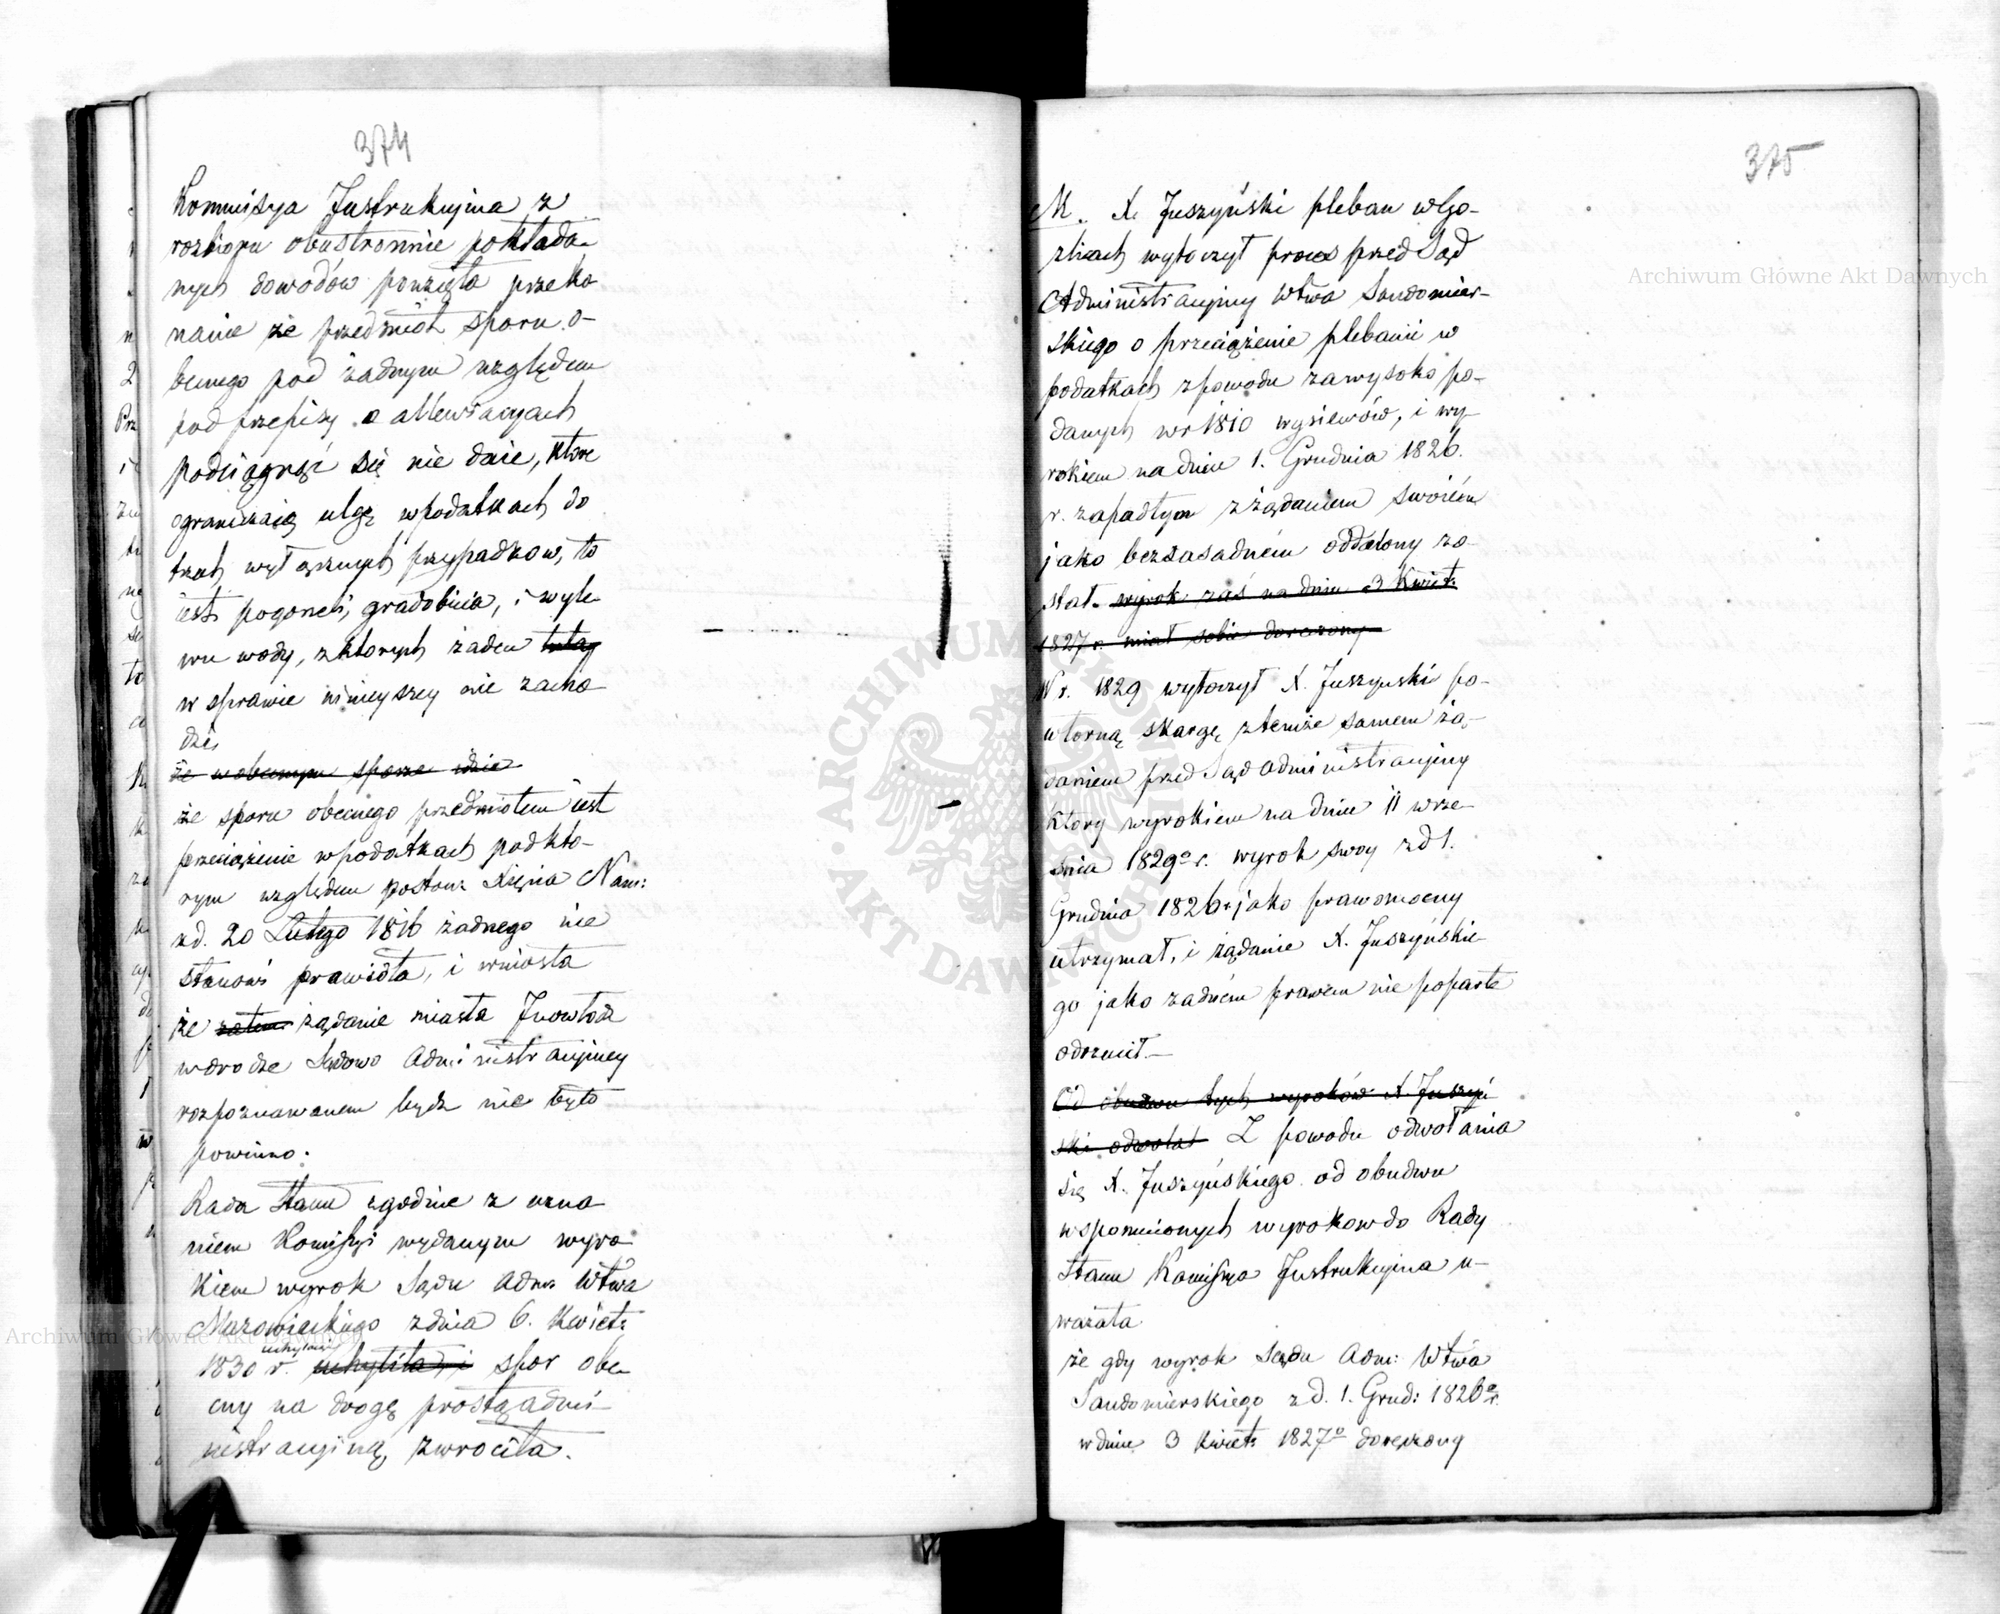 374
Kommissya Instrukcyina z
rozbioru obustronnie pokłada-
nych dowodów powzięła przeko
nanie że przedmiot sporu o-
becnego pod żadnym względem
pod przepisy o allewiacyach
podciągnąć się nie daie, które
ograniczaią ulgę w podatkach do
trzech wyłącznych przypadkow, to
iest: pogorzeli, gradobicia, i wyle-
wu wody, z ktorych żaden tutay
w sprawie ninieyszey nie zacho
dzi,
że w obecnym sporze idzie
że sporu obecnego przedmiotem iest
przeciążenie w podatkach pod kto-
rym względem postan: Xięcia Nam:
z d. 20 Lutego 1816 żadnego nie
stanowi prawidła, i wniosła
że zatem żądanie miasta Inowłodz
w drodze Sądowo Administracyiney
rozpoznawanem bydz nie było
powinno.
Rada Stanu zgodnie z uzna
niem Komissyi wydanym wyro
kiem wyrok Sądu Adm: Wtwa
Mazowieckiego z dnia 6. Kwiet:
uchyliwszy
1830 r. uchyliła i spor obe
cny na drogę prostą admi-
nistracyiną zwrociła.
375
M. X. Juszyński pleban w Go-
zlicach wytoczył proces przed Sąd
Administracyiny Wtwa Sandomier-
skiego o przeciążenie plebanii w
podatkach z powodu za wysoko po-
danych w r 1810 wysiewów, i wy-
rokiem na dniu 1. Grudnia 1826.
r. zapadłym z żądaniem swoiém
jako bezzasadném oddalony zo-
stał. wyrok zaś na dniu 3 Kwiet:
1827 r. miał sobie doręczony
W r. 1829 wytoczył X. Juszynski po-
wtorną skargę z temże samem żą-
daniem przed Sąd Administracyiny
ktory wyrokiem na dniu 11 wrze-
śnia 1829º r. wyrok swoy z d 1.
Grudnia 1826 r jako prawomocny
utrzymał, i żądanie X. Juszyńskie-
go jako żadném prawem nie poparte
odrzucił.—
Od obudwu tych wyroków X. Juszyń
ski odwołał Z powodu odwołania
się X. Juszyńskiego od obudwu
wspomnionych wyrokow do Rady
Stanu Komissya Instrukcyina u-
ważała
że gdy wyrok Sądu Adm: Wtwa
Sandomierskiego z d. 1. Grud: 1826º r.
w dniu 3 Kwiet: 1827º doręczony
Archiwum Główne Akt Dawnych
Archiwum Główne Akt Dawnych
ARCHIWUM GŁÓWNE AKT DAWNYCH